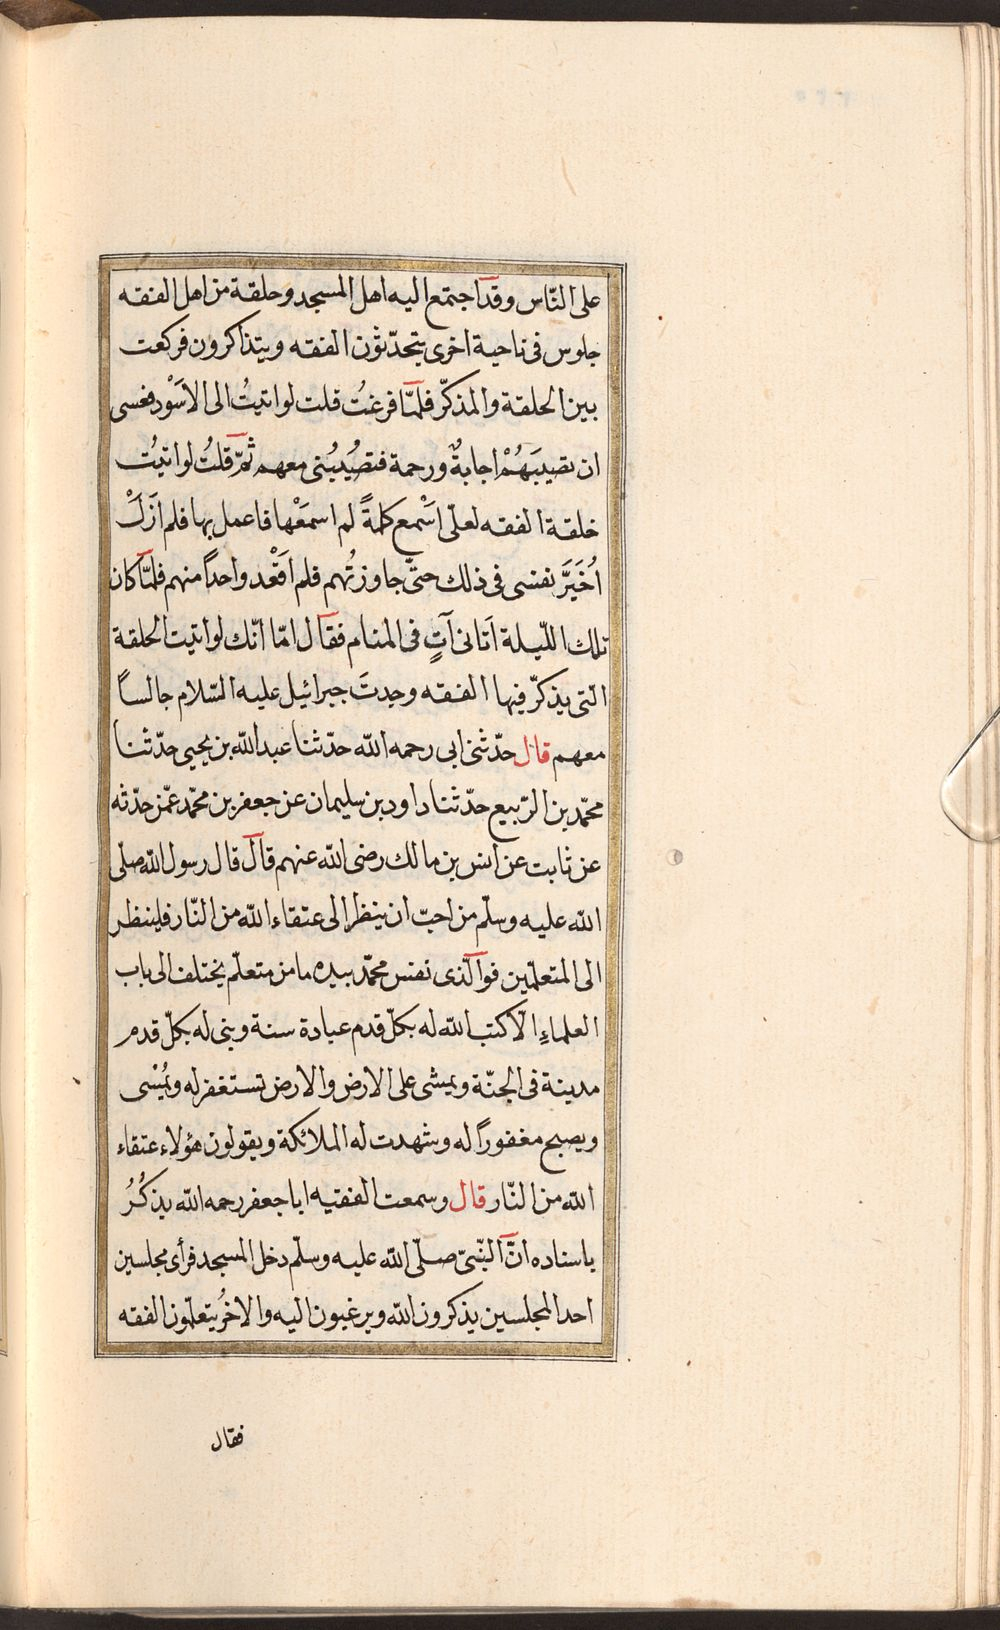 على النّاس وقد اجتمع اليه اهل المسجد وحلقة من اهل الفقه
جلوس فى ناحية اخرى يتحدّثون الفقه ويتذاكرون فركعت
بين الحلقة والمذكّر فلمّا فرغتُ قلت لو اتيتُ الى الاسْود فعسى
ان تصيبَهُمْ اجابةٌ ورحمة فتصيُدبُنى معهم ثمّ قلتُ لو اتيتُ
خلقة الفقه لعلى اسْمع كلمةً لم اسمعْها فاعمل بها فلم ازَلْ
اُخَيَرَّ نفسى فى ذلك حتّى جاوزتُهم فلم اقْعد واحداً منهم فلمّا كان
تلك اللّيلة اَتانى آتٍ فى المنام فقال امّا انّك لو اتيت الحلقة
الّتى يذكرّ فيها الفقه وجدتَ جبرائيل عليه السّلام جالساً
معهم قال حدّثنى ابى رحمه اللّه حدّثنا عبد اللّه بن يحيى حدّثنا
محمّد بن الرّبيع حدّثنا داود بن سليمان عن جعفر بن محمّد عمّن حدّثه
عن ثابت عن انس بن مالك رضى اللّه عنهم قال قال رسول اللّه صلّى
اللّه عليه وسلّم من احبّ ان ينظر الى عتقاء اللّه من النّار فلينظر
الى المتعلمّين فوالّذى نفس محمّد بيده ما من متعلّم يختلف الى باب
العلماءِ الّا كتب اللّه له بكلّ قدم عبادة سنة وبنى له بكلّ قدم
مدينة فى الجنّة ويمشى على الارض والارض تستغفر له ويُمسى
ويصبح مغفوراً له وشهدت له الملائكة ويقولون هؤلاء عتقاء
اللّه من النّار قال وسمعت الفقيه ابا جعفر رحمه اللّه يذكُرُ
باسناده انَّ النّبىّ صلّى اللّه عليه وسلّم دخل المسجد فرأى مجلسين
احد المجلسين يذكرون اللّه ويرغبون اليه والاخُر يتعلّمون الفقه
فقال